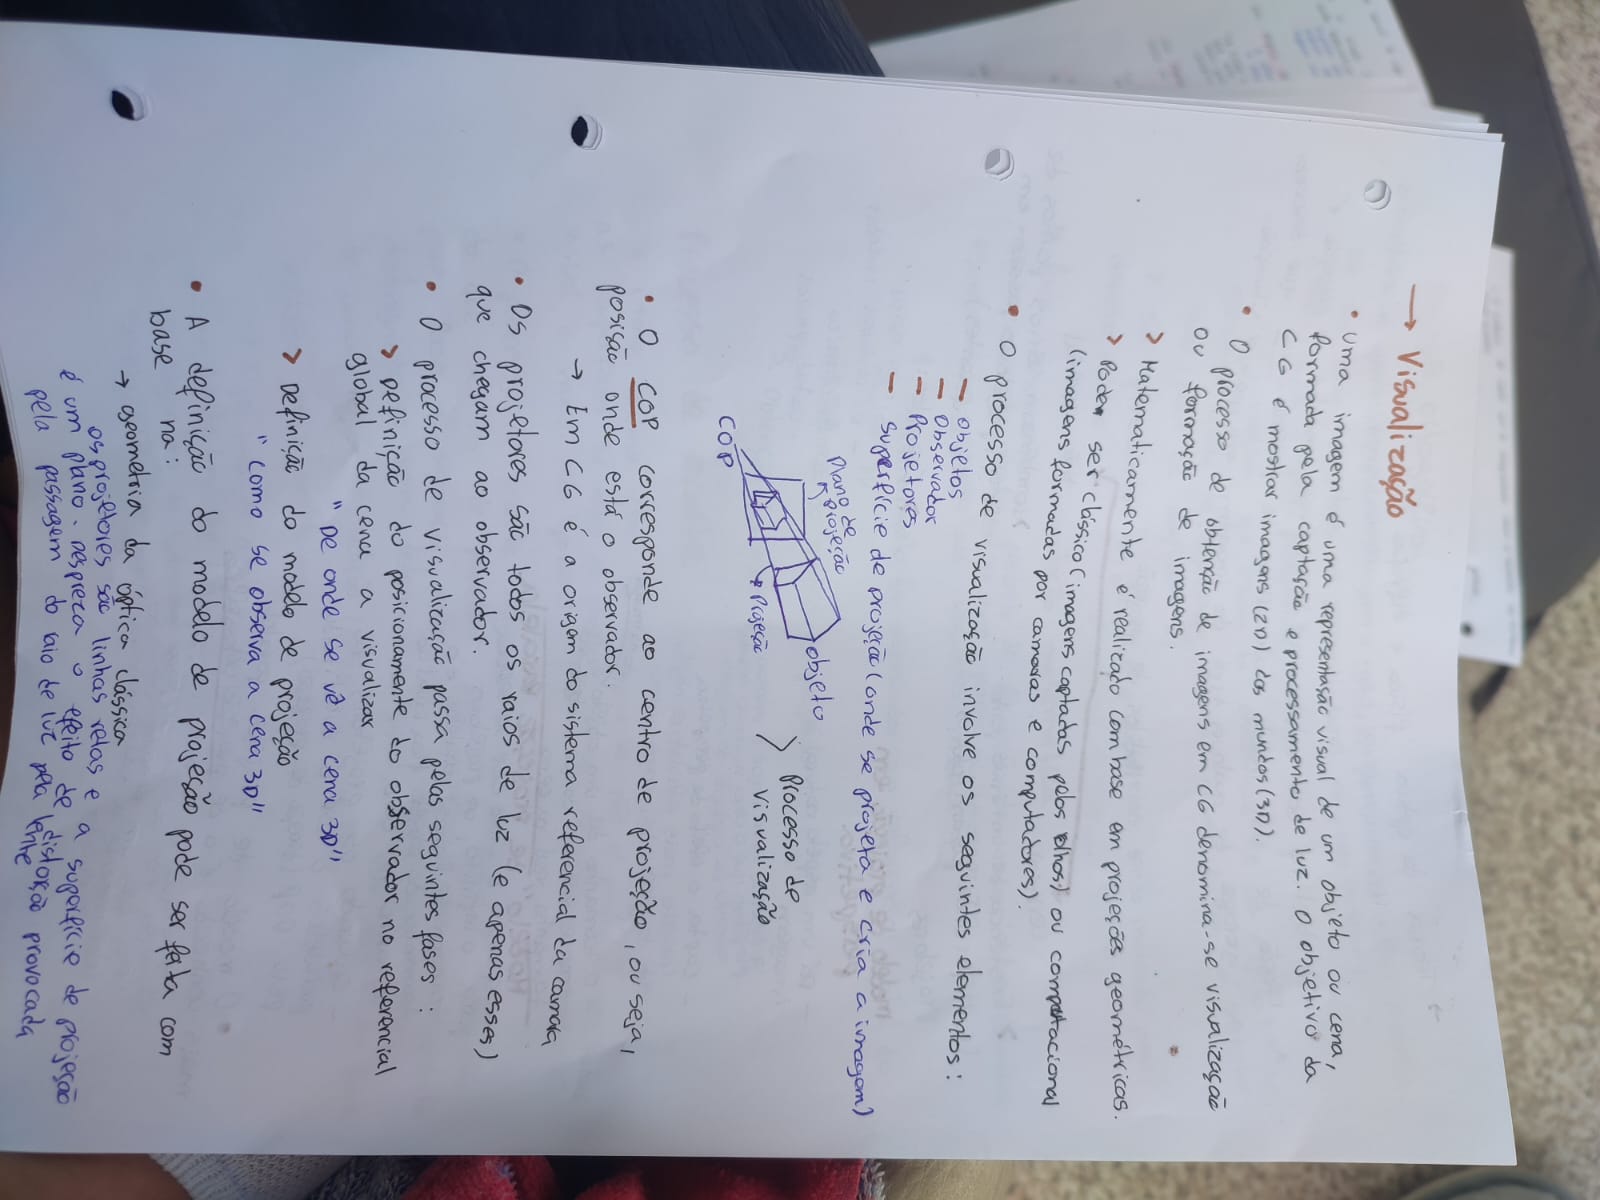 → Visualização
• uma imagem é uma representação visual de um objeto ou cena,
formada pela captação e processamento de luz. O objetivo da
CG é mostrar imagens (2D) dos mundos (3D).
• O processo de obtenção de imagens em CG denomina-se visualização
ou formação de imagens.
> Matematicamente é realizado com base em projeções geométricas.
> Podem ser clássico (imagens captadas pelos olhos) ou computacional
(imagens formadas por camaras e computadores).
• O processo de visualização involve os seguintes elementos:
- Objetos
- Observador
- Projetores
- Superfície de projeção (onde se projeta e cria a imagem)
Plano de
projeção
objeto
Projeção
COP
> Processo de
visualização
• O COP corresponde ao centro de projeção, ou seja,
posição onde está o observador.
→ Em CG é a origem do sistema referencial da camara
• Os projetores são todos os raios de luz (e apenas esses)
que chegam ao observador.
• O processo de visualização passa pelas seguintes fases:
> Definição do posicionamento do observador no referencial
global da cena a visualizar
"De onde se vê a cena 3D"
> Definição do modelo de projeção
"como se observa a cena 3D"
• A definição do modelo de projeção pode ser feita com
base na:
→ geometria da óptica clássica
os projetores são linhas retas e a superfície de projeção
é um plano. Despreza o efeito de distorção provocada
pela passagem do raio de luz pela lente